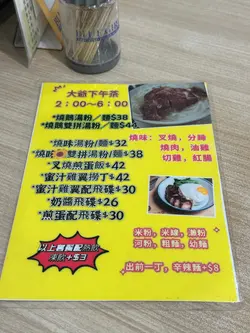 大爺下午茶
2:00～6:00
*燒鵝湯粉/麵$38
*燒鵝雙拼湯粉/麵$44
*燒味湯粉/麵$32
*燒味雙拼湯粉/麵$38
*叉燒煎蛋飯$42
*蜜汁雞翼撈丁$42
*蜜汁雞翼配飛碟$30
*奶醬飛碟$26
*煎蛋配飛碟$30
燒味：叉燒，分蹄
燒肉，油雞
切雞，紅腸
米粉，米線，瀨粉
河粉，粗麵，幼麵
出前一丁，辛辣麵+$8
以上套餐配熱飲
凍飲+$3